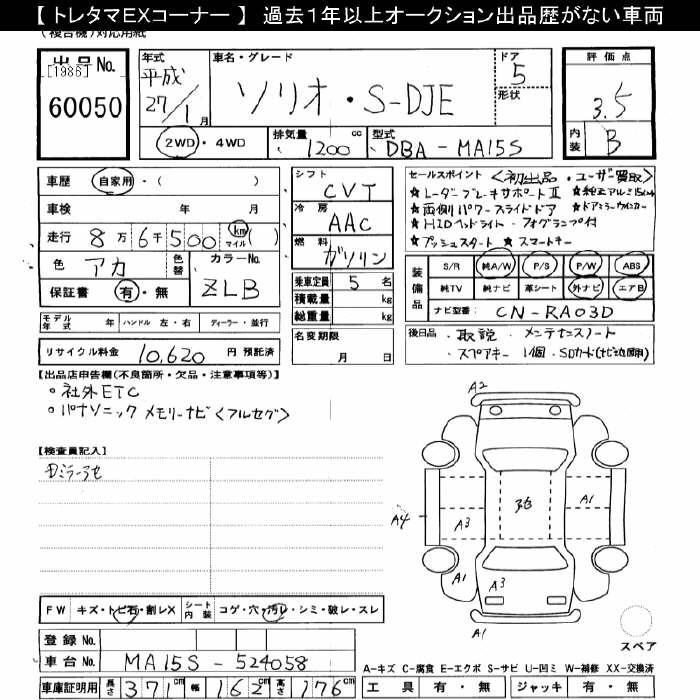 【トレタマEXコーナー】 過去1年以上オークション出品歴がない車両
(複合機)対応用紙
出品No.
[1986]
60050
年式
平成
27/1月
車名・グレード
ソリオ・S-DJE
ドア
5
形状
評価点
3.5
内装 B
2WD・4WD
排気量 1200 cc
型式 DBA-MA15S
車歴 自家用・( )
車検 年 月
走行 8万6千500 km マイル ( )
色 アカ
色替
カラーNo. ZLB
保証書 有・無
シフト CVT
冷房 AAC
燃料 ガソリン
乗車定員 5 名
積載量 kg
総重量 kg
セールスポイント <初出品・ユーザー買取>
★レーダーブレーキサポートⅡ ★純正アルミ15インチ
★両側パワースライドドア ★ドアミラーウインカー
★HIDヘッドライト・フォグランプ付
★プッシュスタート ★スマートキー
装備品
S/R 純A/W P/S P/W ABS
純TV 純ナビ 革シート 外ナビ エアB
ナビ型番 CN-RA03D
モデル年式 年 ハンドル 左・右 ディーラー・並行
リサイクル料金 10,620 円 預託済
名変期限
月 日
後日品 ・取説 ・メンテナンスノート
・スペアキー 1個 ・SDカード(ナビ地図用)
【出品店申告欄(不良箇所・欠品・注意事項等)】
○社外ETC
○パナソニック メモリーナビ<フルセグ>
【検査員記入】
A2
A4
A3
A1
A1
A3
A1
FW キズ・トビ石・割レX
シート内装 コゲ・穴・汚レ・シミ・破レ・スレ
登録No.
車台No. MA15S-524058
車庫証明用 長さ 371cm 幅 162cm 高さ 176cm
スペア
A-キズ C-腐食 E-エクボ S-サビ U-凹ミ W-補修 XX-交換済
工具 有・無 ジャッキ 有・無